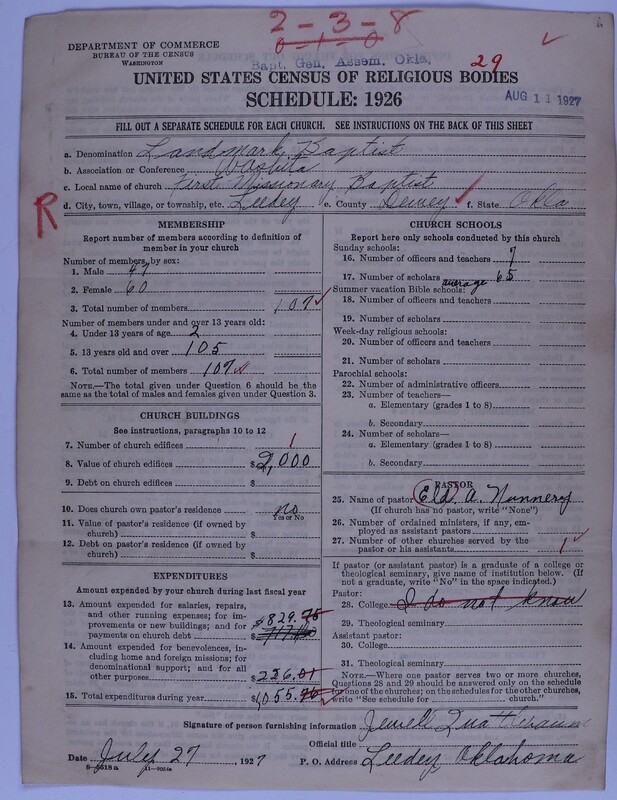 2-3-8
0-1-0
DEPARTMENT OF COMMERCE
BUREAU OF THE CENSUS
WASHINGTON
Bapt. Gen. Assem. Okla.
29
UNITED STATES CENSUS OF RELIGIOUS BODIES
SCHEDULE: 1926
AUG 11 1927
FILL OUT A SEPARATE SCHEDULE FOR EACH CHURCH. SEE INSTRUCTIONS ON THE BACK OF THIS SHEET
a. Denomination Landmark Baptist
b. Association or Conference Washita
c. Local name of church First Missionary Baptist
R
d. City, town, village, or township, etc. Leedey e. County Dewey f. State Okla
MEMBERSHIP
Report number of members according to definition of
member in your church
Number of members, by sex:
1. Male 47
2. Female 60
3. Total number of members 107
Number of members under and over 13 years old:
4. Under 13 years of age 2
5. 13 years old and over 105
6. Total number of members 107
NOTE.—The total given under Question 6 should be the
same as the total of males and females given under Question 3.
CHURCH BUILDINGS
See instructions, paragraphs 10 to 12
7. Number of church edifices 1
8. Value of church edifices $2,000
9. Debt on church edifices $
10. Does church own pastor's residence no
Yes or No
11. Value of pastor's residence (if owned by
church) $
12. Debt on pastor's residence (if owned by
church) $
EXPENDITURES
Amount expended by your church during last fiscal year
13. Amount expended for salaries, repairs,
and other running expenses; for im-
provements or new buildings; and for
payments on church debt $829.75
14. Amount expended for benevolences, in-
cluding home and foreign missions; for
denominational support; and for all
other purposes $226.01
15. Total expenditures during year $1055.76
CHURCH SCHOOLS
Report here only schools conducted by this church
Sunday schools:
16. Number of officers and teachers 7
17. Number of scholars average 65
Summer vacation Bible schools:
18. Number of officers and teachers
19. Number of scholars
Week-day religious schools:
20. Number of officers and teachers
21. Number of scholars
Parochial schools:
22. Number of administrative officers
23. Number of teachers—
a. Elementary (grades 1 to 8)
b. Secondary
24. Number of scholars—
a. Elementary (grades 1 to 8)
b. Secondary
PASTOR
25. Name of pastor Eld. A. Nunnery
(If church has no pastor, write "None")
26. Number of ordained ministers, if any, em-
ployed as assistant pastors
27. Number of other churches served by the
pastor or his assistants 1
If pastor (or assistant pastor) is a graduate of a college or
theological seminary, give name of institution below. (If
not a graduate, write "No" in the space indicated.)
Pastor:
28. College I do not know
29. Theological seminary
Assistant pastor:
30. College
31. Theological seminary
NOTE.—Where one pastor serves two or more churches,
Questions 28 and 29 should be answered only on the schedule
for one of the churches; on the schedules for the other churches,
write "See schedule for church."
Signature of person furnishing information Jewell
Official title
Date July 27 1927 P. O. Address Leedey, Oklahoma